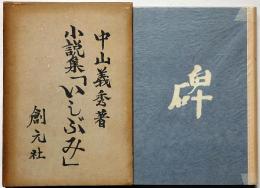 中山義秀著
小説集「いしぶみ」
創元社
碑